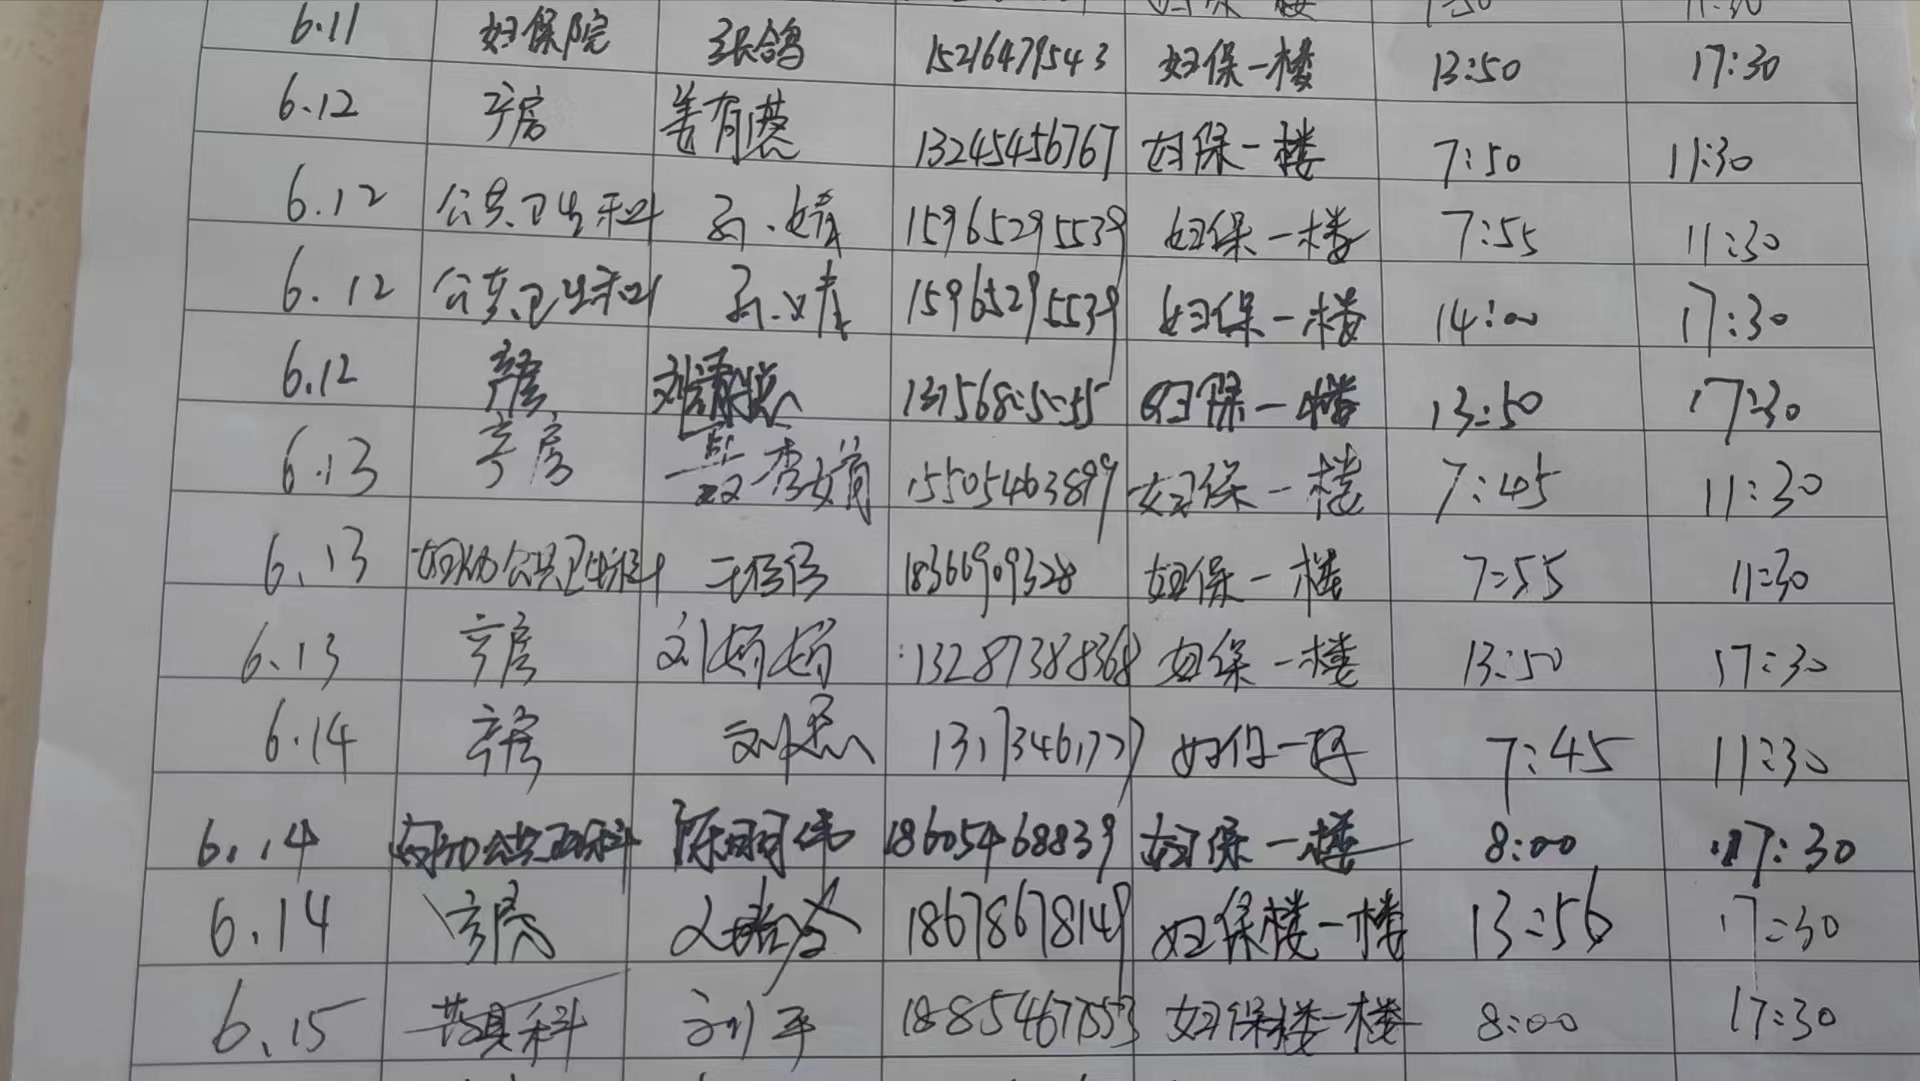 6.11 妇保院 张鸽 15216479543 妇保一楼 13:50 17:30
6.12 产房 姜有慧 13245456767 妇保一楼 7:50 11:30
6.12 公共卫生科 孙婧 15965295539 妇保一楼 7:55 11:30
6.12 公共卫生科 孙婧 15965295539 妇保一楼 14:00 17:30
6.12 产房 妇保一楼 13:50 17:30
6.13 产房 李娟 15505463899 妇保一楼 7:45 11:30
6.13 妇幼公共卫生科 18366909328 妇保一楼 7:55 11:30
6.13 产房 刘娇娇 13287388368 妇保一楼 13:50 17:30
6.14 产房 妇保一楼 7:45 11:30
6.14 18605468839 妇保一楼 8:00 17:30
6.14 产房 18678678149 妇保楼一楼 13:56 17:30
6.15 刘平 18854677553 妇保楼一楼 8:00 17:30